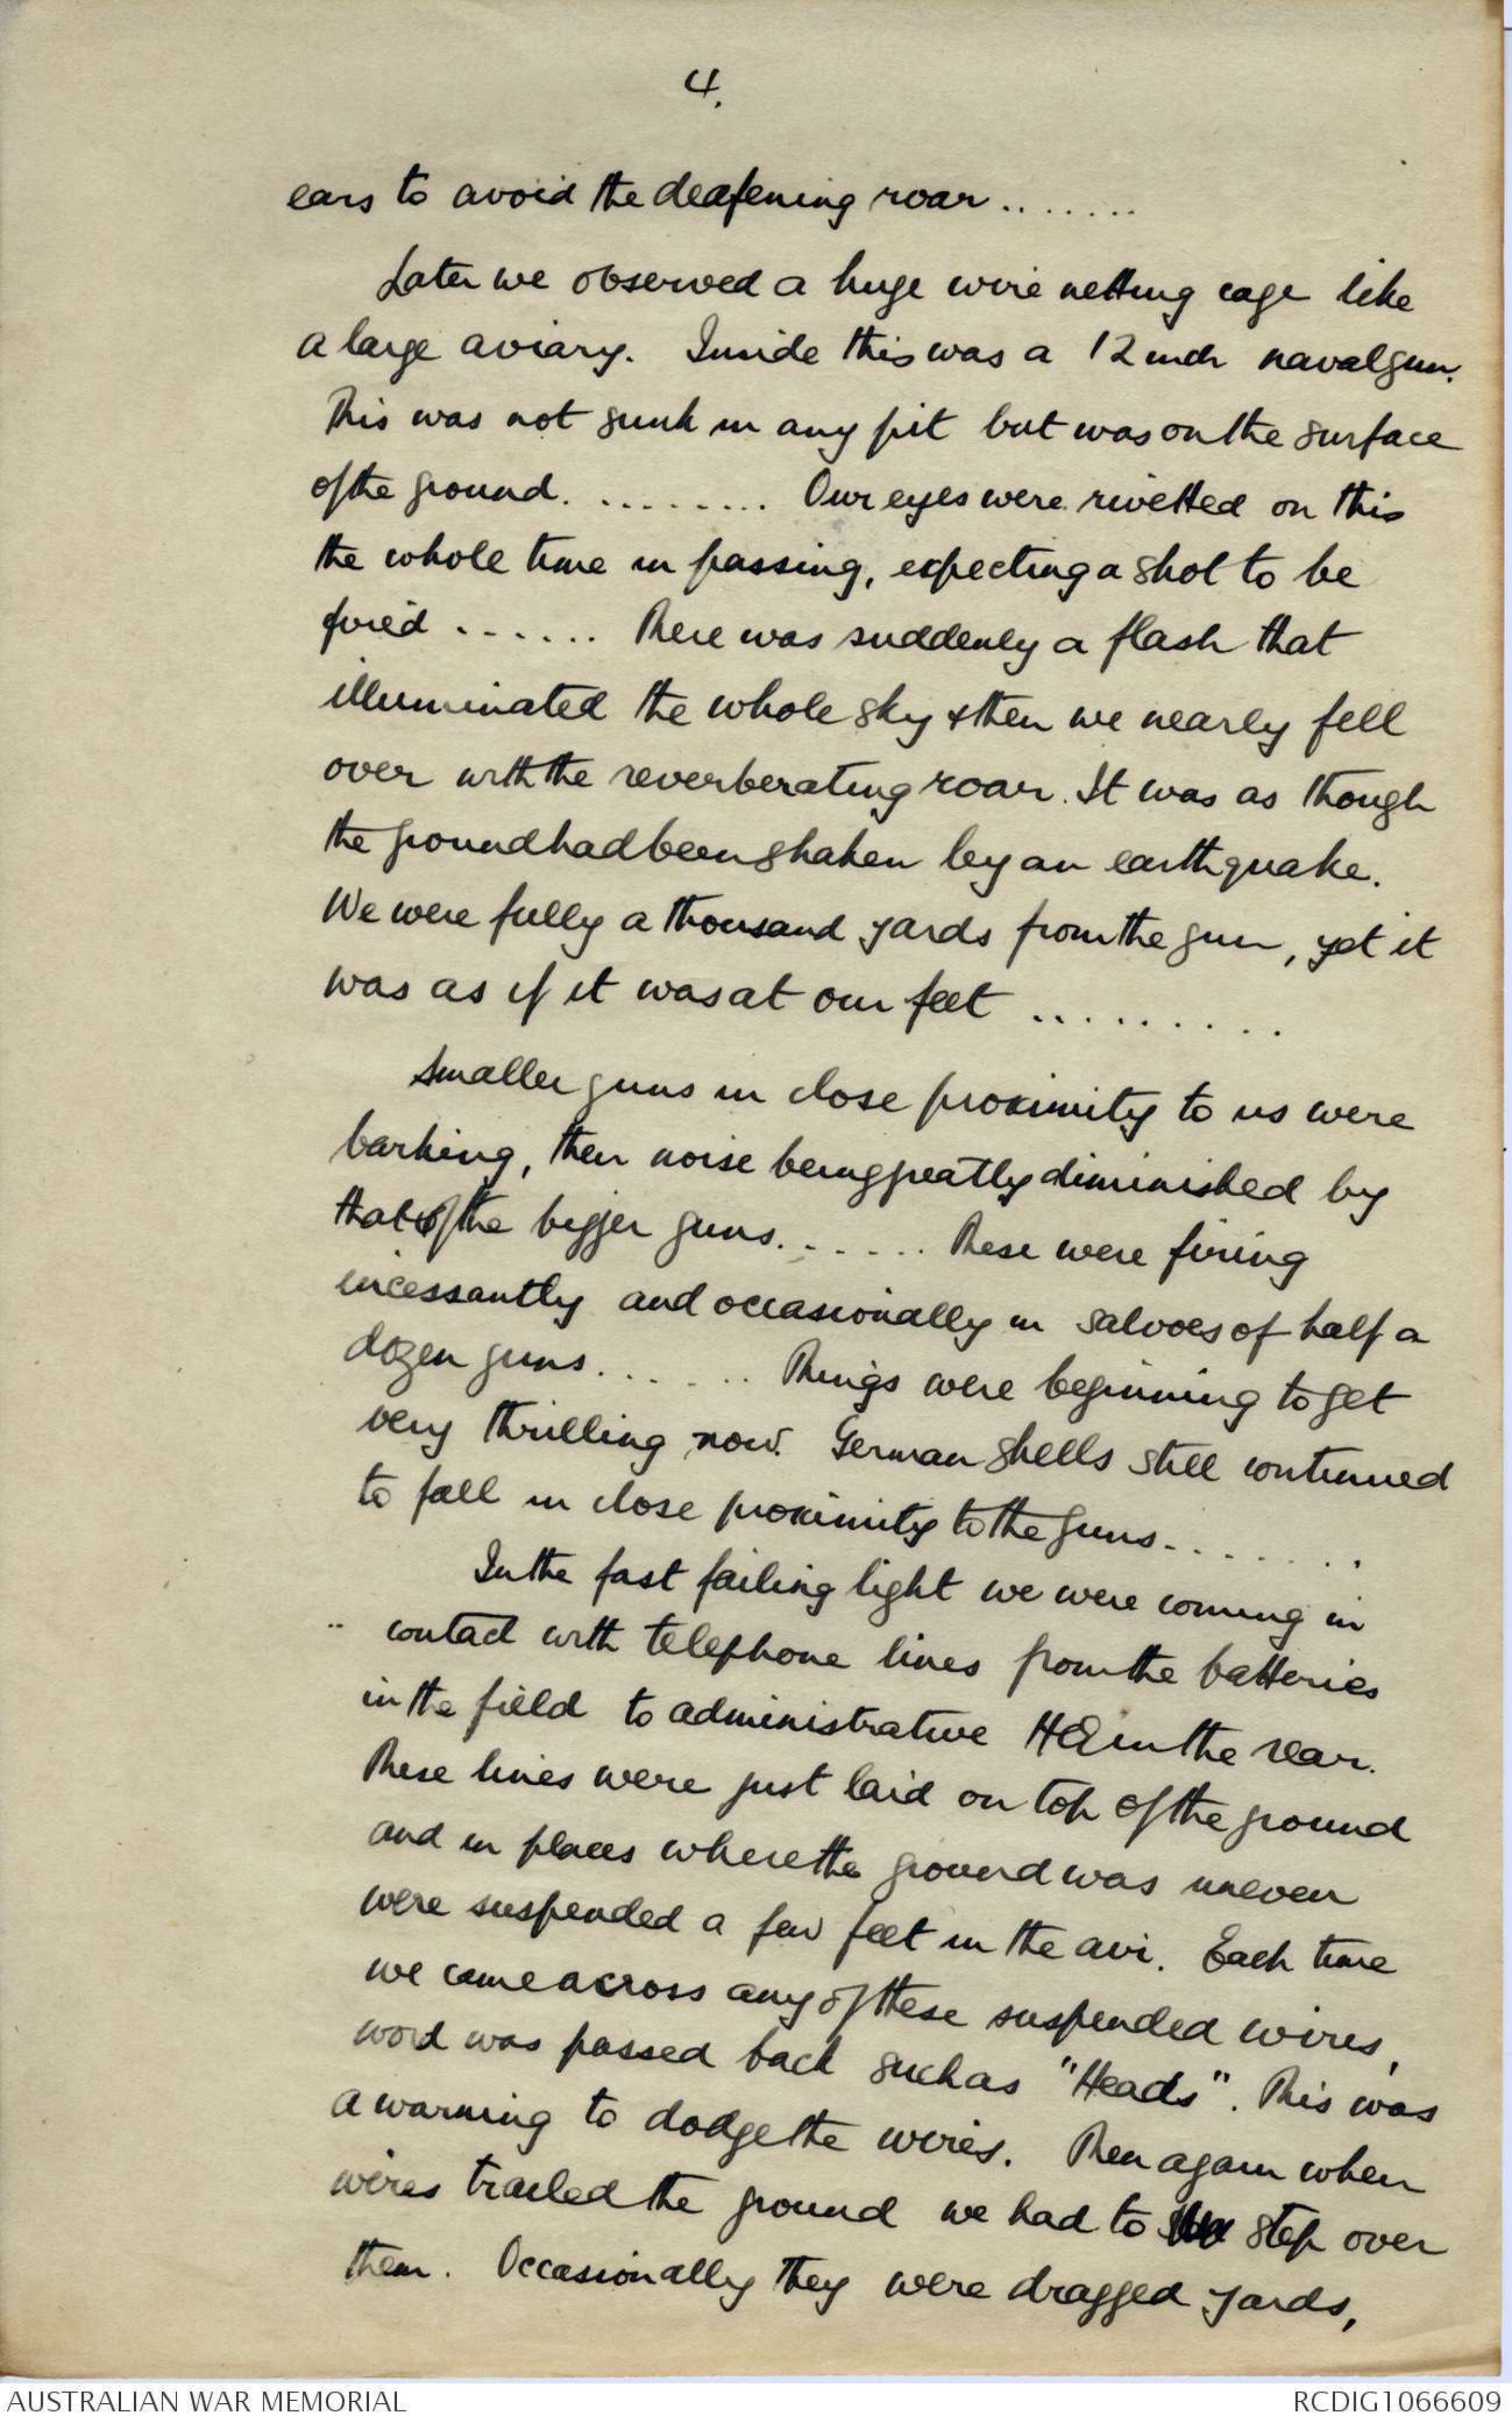 4.
ears to avoid the deafening roar ........
Later we observed a huge wire netting cage like
a large aviary. Inside this was a 12 inch naval gun.
This was not sunk in any pit but was on the surface
of the ground. ......... Our eyes were rivetted on this
the whole time in passing, expecting a shot to be
fired ...... There was suddenly a flash that
illuminated the whole sky & then we nearly fell
over with the reverberating roar. It was as though
the ground had been shaken by an earthquake.
We were fully a thousand yards from the gun, yet it
was as if it was at our feet .........
Smaller guns in close proximity to us were
barking, their noise being greatly diminished by
that of the bigger guns. ...... These were firing
incessantly and occasionally in salvoes of half a
dozen guns. ...... Things were beginning to get
very thrilling now. German shells still continued
to fall in close proximity to the guns. .......
In the fast failing light we were coming in
contact with telephone lines from the batteries
in the field to administrative HQ in the rear.
These lines were just laid on top of the ground
and in places where the ground was uneven
were suspended a few feet in the air. Each time
we came across any of these suspended wires,
word was passed back such as "Heads". This was
a warning to dodge the wires. Then again when
wires trailed the ground we had to step over
them. Occasionally they were dragged yards,
AUSTRALIAN WAR MEMORIAL
RCDIG1066609